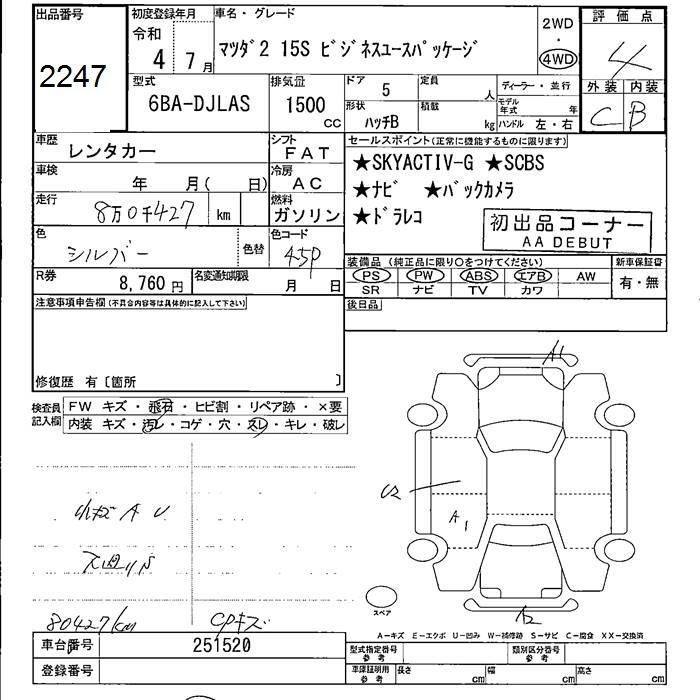 出品番号
2247
初度登録年月
令和
4年 7月
車名・グレード
マツダ2 15S ビジネスユースパッケージ
2WD
・
4WD
評価点
4
外装 内装
C B
型式
6BA-DJLAS
排気量
1500
cc
ドア 5
形状
ハッチB
定員
人
積載
kg
ディーラー・並行
モデル年式 年
ハンドル 左・右
車歴
レンタカー
シフト
FAT
車検
年 月( 日)
冷房
AC
走行
8万0千427 km
燃料
ガソリン
色
シルバー
色替
色コード
45P
R券
8,760円
名変通知期限
月 日
セールスポイント(正常に機能するものに限ります)
★SKYACTIV-G ★SCBS
★ナビ ★バックカメラ
★ドラレコ
初出品コーナー
AA DEBUT
装備品(純正品に限り○をつけてください)
PS PW ABS エアB AW
SR ナビ TV カワ
新車保証書
有・無
後日品
注意事項申告欄(不具合内容等は具体的に記入して下さい)
修復歴 有〔箇所 〕
検査員記入欄
FW キズ・飛石・ヒビ割・リペア跡・×要
内装 キズ・汚レ・コゲ・穴・スレ・キレ・破レ
A1
U2
A1
小キズ A U
80427km
CPキズ
スペア
A2
A-キズ E-エクボ U-凹み W-補修跡 S-サビ C-腐食 XX-交換済
車台番号
251520
登録番号
型式指定番号
参考
類別区分番号
参考
車庫証明用
参考
長さ cm
幅 cm
高さ cm